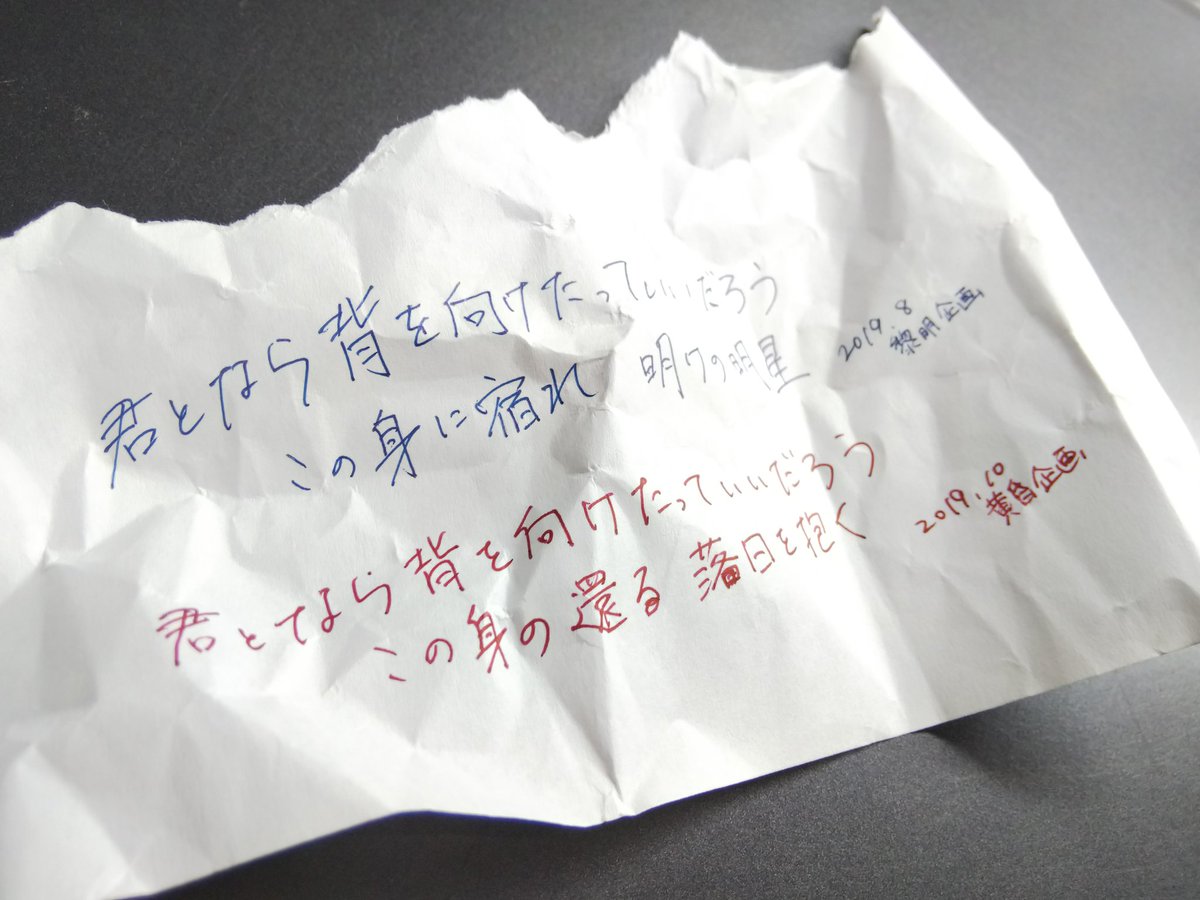 君となら背を向けたっていいだろう
この身に宿れ 明けの明星
2019.8
黎明企画
君となら背を向けたっていいだろう
この身の還る 落日を抱く
2019.10
黄昏企画